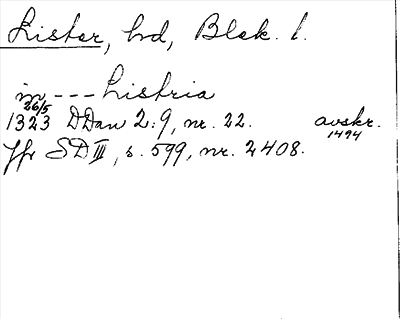 Lister, hd, Blek. l.
in --- Listria
26/5
1323 DDan 2:9, nr. 22. avskr.
1494
Jfr SD III, s. 599, nr. 2408.